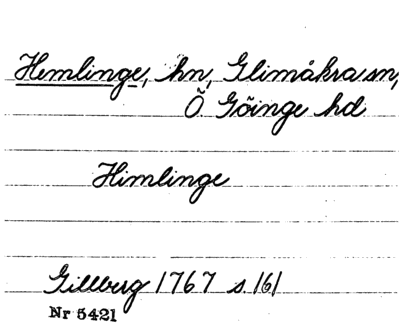 Hemlinge, hn, Glimåkra sn,
Ö Göinge hd
Himlinge
Gillberg 1767 s 161
Nr 5421